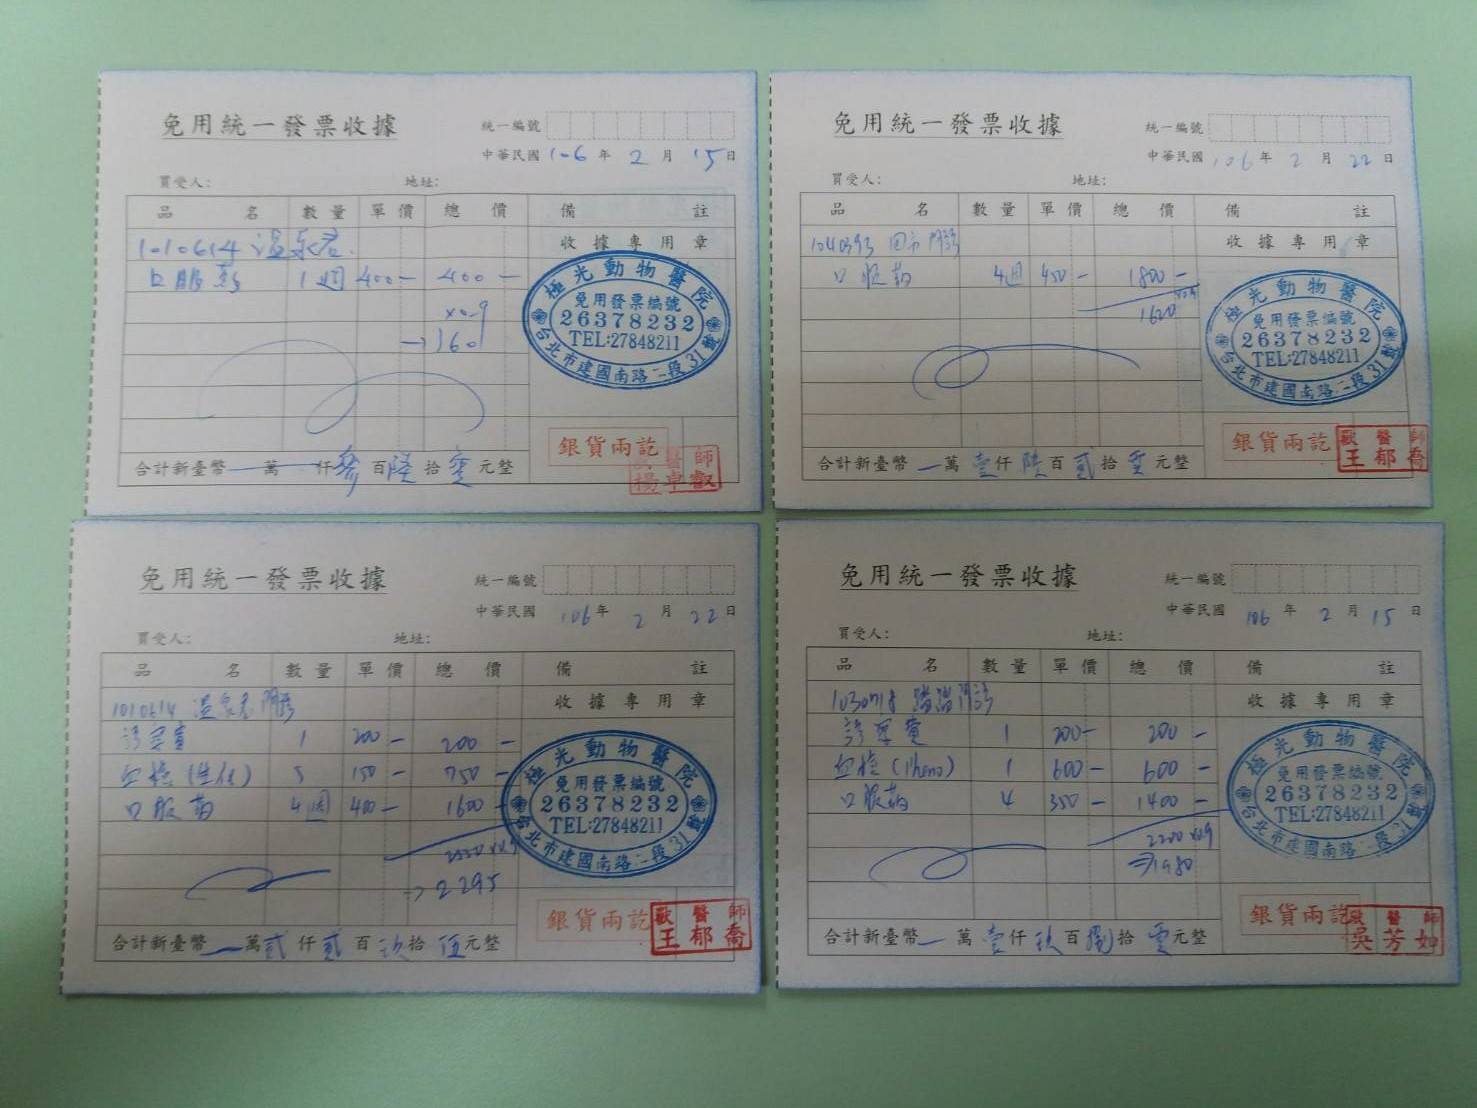 免用統一發票收據
統一編號
中華民國 106 年 2 月 15 日
買受人： 地址：
品名 數量 單價 總價 備註
1010614 溫泉君
收據專用章
口服藥 1週 400- 400-
x0.9
→360
極光動物醫院
免用發票編號
26378232
TEL:27848211
台北市建國南路二段31號
銀貨兩訖
醫師
楊卓叡
合計新臺幣 一 萬 一 仟 參 百 陸 拾 零 元整
免用統一發票收據
統一編號
中華民國 106 年 2 月 22 日
買受人： 地址：
品名 數量 單價 總價 備註
1040393 門診
收據專用章
口服藥 4週 450- 1800-
x0.9
1620
極光動物醫院
免用發票編號
26378232
TEL:27848211
台北市建國南路二段31號
銀貨兩訖
獸醫師
王郁喬
合計新臺幣 一 萬 壹 仟 陸 百 貳 拾 零 元整
免用統一發票收據
統一編號
中華民國 106 年 2 月 22 日
買受人： 地址：
品名 數量 單價 總價 備註
1010614 溫泉君 門診
收據專用章
診察費 1 200- 200-
血檢(生化) 5 150- 750-
口服藥 4週 400- 1600-
2550x0.9
→2295
極光動物醫院
免用發票編號
26378232
TEL:27848211
台北市建國南路二段31號
銀貨兩訖
獸醫師
王郁喬
合計新臺幣 一 萬 貳 仟 貳 百 玖 拾 伍 元整
免用統一發票收據
統一編號
中華民國 106 年 2 月 15 日
買受人： 地址：
品名 數量 單價 總價 備註
門診
收據專用章
診察費 1 200- 200-
血檢(Pheno) 1 600- 600-
口服藥 4 350- 1400-
2200x0.9
→1980
極光動物醫院
免用發票編號
26378232
TEL:27848211
台北市建國南路二段31號
銀貨兩訖
獸醫師
吳芳如
合計新臺幣 一 萬 壹 仟 玖 百 捌 拾 零 元整